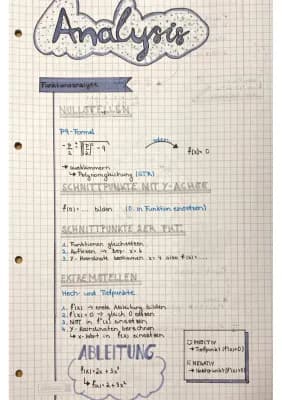 Analysis
Funktionsanalyse
NULLSTELLEN
PQ-Formel
oder
f(x) = 0
→ ausklammern
↳ Polynomgleichung (GTR)
SCHNITTPUNKTE MIT Y-ACHSE
f(0) = ... bilden (0 in Funktion einsetzen)
SCHNITTPUNKTE 2ER FKT.
1. Funktionen gleichsetzen
2. Auflösen → bsp. x = 4
3. Y-Koordinate bestimmen x = 4 also f(x) = ...
EXTREMSTELLEN
Hoch- und Tiefpunkte
1. f'(x) → erste Ableitung bilden
2. f'(x) = 0 → gleich 0 setzen
3. NST in f''(x) einsetzen
4. Y-Koordinaten berechnen
↳ x-Wert in f(x) einsetzen
POSITIV
→ Tiefpunkt
NEGATIV
→ Hochpunkt
ABLEITUNG